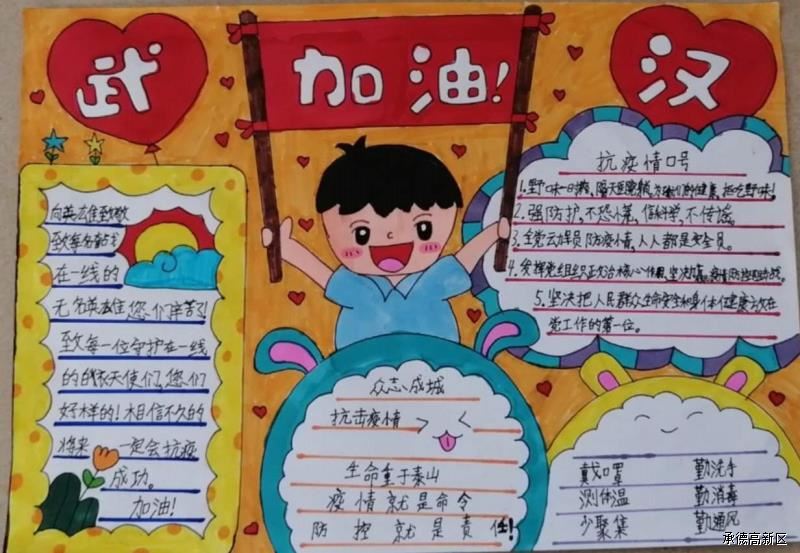 武 加油! 汉
向英雄致敬
致每名奋战
在一线的
无名英雄您们辛苦了!
致每一位守护在一线
的白衣天使们,您们
好样的!相信不久的
将来 一定会抗疫
成功。
加油!
众志成城
抗击疫情
生命重于泰山
疫情就是命令
防控就是责任!
抗疫情口号
1.野味一日携,隔天医院躺,为了我们的健康,拒吃野味!
2.强防护,不恐慌,信科学,不传谣。
3.全党云动员防疫情,人人都是安全员。
4.发挥党组织政治核心作用,坚决打赢疫情防控阻击战。
5.坚决把人民群众生命安全和身体健康放在
党工作的第一位。
戴口罩 勤洗手
测体温 勤消毒
少聚集 勤通风
承德高新区